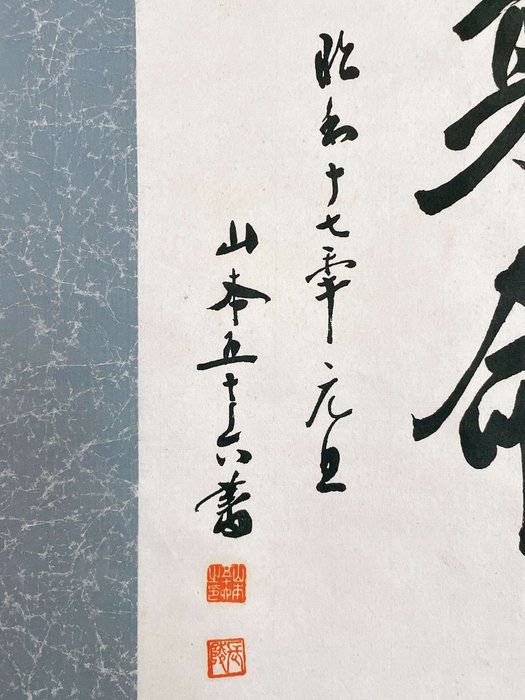 昭和十七年元旦
山本五十六書
長陵